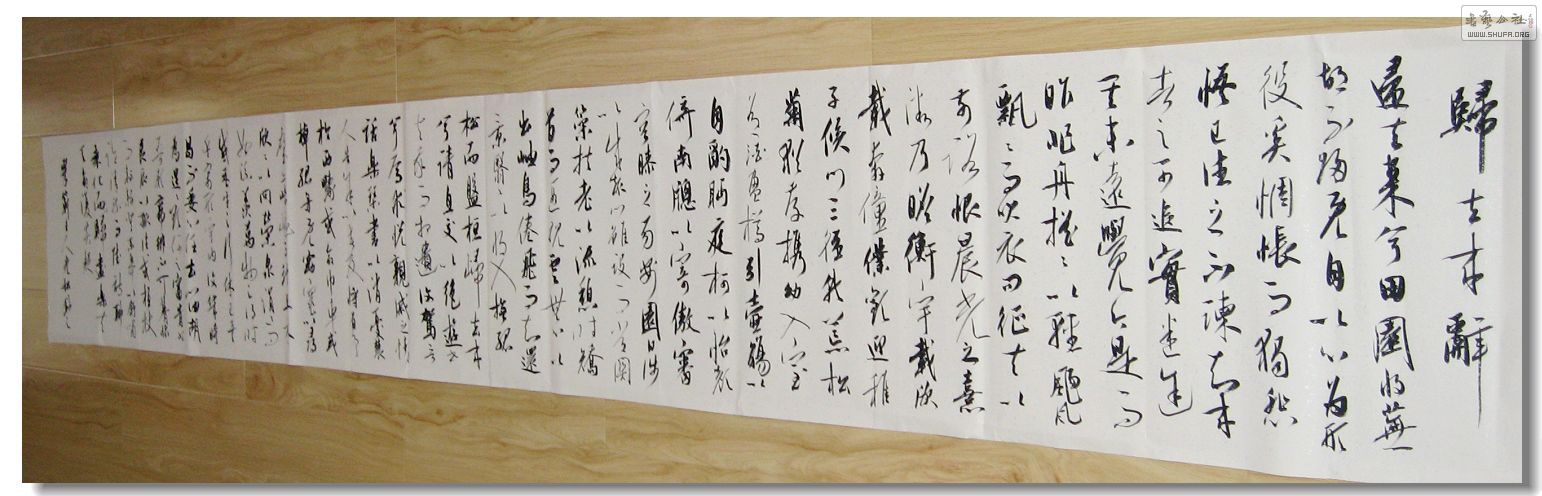 歸去来辭
歸去来兮田園将蕪
胡不歸既自以心为形
役奚惆悵而獨悲
悟已往之不諫知来
者之可追實迷途
其未遠覺今是而
昨非舟摇摇以輕颺风
飄飄而吹衣问征夫以
前路恨晨光之熹
微乃瞻衡宇載欣
載奔僮僕歡迎稚
子候门三径就荒松
菊猶存携幼入室
有酒盈樽引壺觴以
自酌眄庭柯以怡颜
倚南牕以寄傲審
容膝之易安園日涉
以成趣门雖设而常關
策扶老以流憩时矯
首而遐观雲無心以
出岫鳥倦飛而知還
景翳翳以将入撫孤
松而盤桓歸去来
兮请息交以绝遊世
与我而相遺復駕言
兮焉求悦親戚之情
話樂琴書以消憂農
人告余以春及将有事
於西疇或命巾車或
棹孤舟既窈窕以尋
欣欣以向榮泉涓涓而
始流羨萬物之得时
感吾生之行休已矣乎
曷不委心任去留胡
吾願帝鄉不可期懷
良辰以孤往或植杖
乘化而歸盡樂夫
天命復奚疑
書藝公社
WWW.SHUFA.ORG